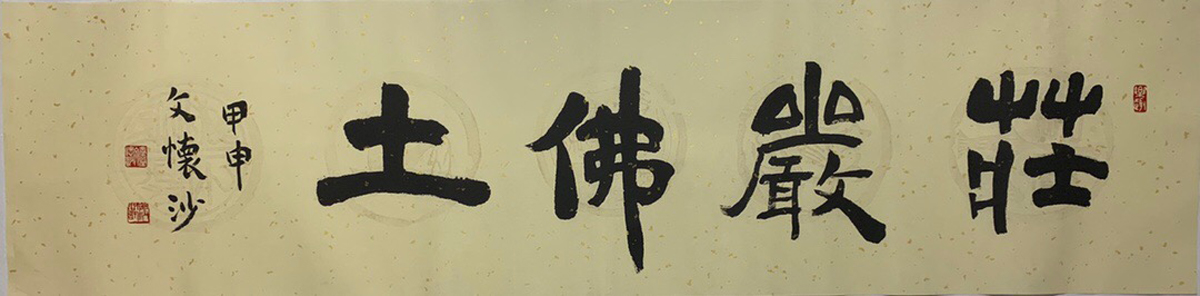 莊嚴佛土
甲申
文懷沙